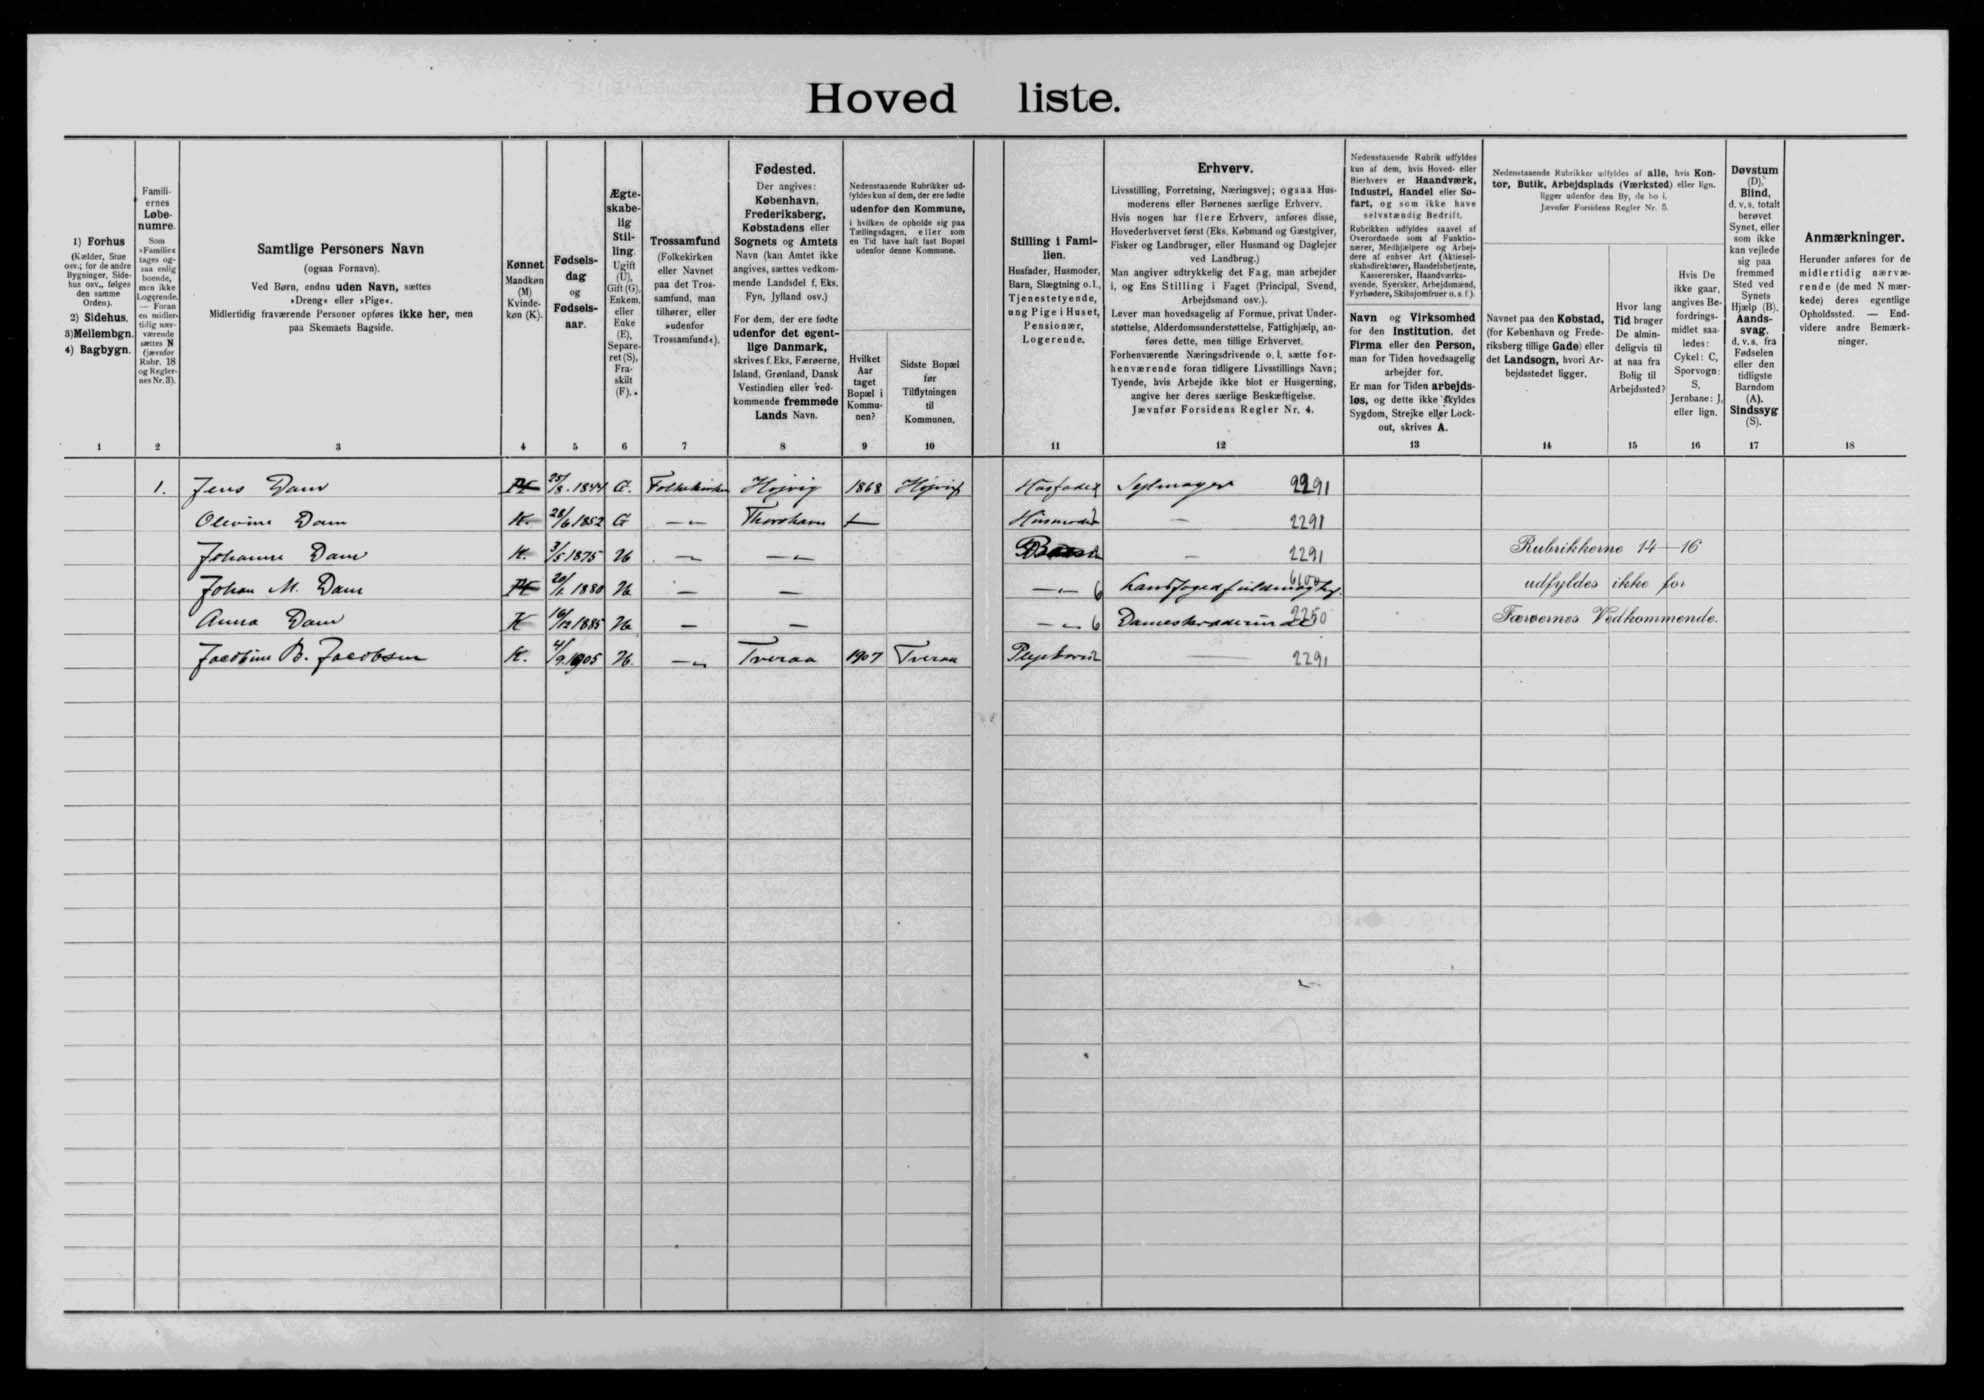 Hoved liste.
1) Forhus
(Kælder, Stue
osv.; for de andre
Bygninger, Side-
hus osv., følges
den samme
Orden).
2) Sidehus.
3) Mellembgn.
4) Bagbygn.
1
Famili-
ernes
Løbe-
numre.
Som
»Familie«
tages og-
saa enlig
boende,
men ikke
Logerende.
— Foran
en midler-
tidig nær-
værende
sættes N
(jævnfør
Rubr. 18
og Regler-
nes Nr. 3).
2
Samtlige Personers Navn
(ogsaa Fornavn).
Ved Børn, endnu uden Navn, sættes
»Dreng« eller »Pige«.
Midlertidig fraværende Personer opføres ikke her, men
paa Skemaets Bagside.
3
Kønnet
Mandkøn
(M)
Kvinde-
køn (K).
4
Fødsels-
dag
og
Fødsels-
aar.
5
Ægte-
skabe-
lig
Stil-
ling.
Ugift
(U),
Gift (G),
Enkem.
eller
Enke
(E),
Separe-
ret (S),
Fra-
skilt
(F).
6
Trossamfund
(Folkekirken
eller Navnet
paa det Tros-
samfund, man
tilhører, eller
»udenfor
Trossamfund«).
7
Fødested.
Der angives:
København,
Frederiksberg,
Købstadens eller
Sognets og Amtets
Navn (kan Amtet ikke
angives, sættes vedkom-
mende Landsdel f. Eks.
Fyn, Jylland osv.)
For dem, der ere fødte
udenfor det egent-
lige Danmark,
skrives f. Eks. Færøerne,
Island, Grønland, Dansk
Vestindien eller ved-
kommende fremmede
Lands Navn.
8
Nedenstaaende Rubrikker ud-
fyldes kun af dem, der ere fødte
udenfor den Kommune,
i hvilken de opholde sig paa
Tællingsdagen, eller som
en Tid have haft fast Bopæl
udenfor denne Kommune.
Hvilket
Aar
taget
Bopæl i
Kommu-
nen?
9
Sidste Bopæl
før
Tilflytningen
til
Kommunen.
10
Stilling i Fami-
lien.
Husfader, Husmoder,
Barn, Slægtning o. l.,
Tjenestetyende,
ung Pige i Huset,
Pensionær,
Logerende.
11
Erhverv.
Livsstilling, Forretning, Næringsvej; ogsaa Hus-
moderens eller Børnenes særlige Erhverv.
Hvis nogen har flere Erhverv, anføres disse,
Hovederhvervet først (Eks. Købmand og Gæstgiver,
Fisker og Landbruger, eller Husmand og Daglejer
ved Landbrug.)
Man angiver udtrykkelig det Fag, man arbejder
i, og Ens Stilling i Faget (Principal, Svend,
Arbejdsmand osv.).
Lever man hovedsagelig af Formue, privat Under-
støttelse, Alderdomsunderstøttelse, Fattighjælp, an-
føres dette, men tillige Erhvervet.
Forhenværende Næringsdrivende o. l. sætte for-
henværende foran tidligere Livsstillings Navn;
Tyende, hvis Arbejde ikke blot er Husgerning,
angive her deres særlige Beskæftigelse.
Jævnfør Forsidens Regler Nr. 4.
12
Nedenstaaende Rubrik udfyldes
kun af dem, hvis Hoved- eller
Bierhverv er Haandværk,
Industri, Handel eller Sø-
fart, og som ikke have
selvstændig Bedrift.
Rubrikken udfyldes saavel af
Overordnede som af Funktio-
nærer, Medhjælpere og Arbej-
dere af enhver Art (Aktiesel-
skabsdirektører, Handelsbetjente,
Kassererske, Haandværks-
svende, Syersker, Arbejdsmænd,
Fyrbødere, Skibsjomfruer o. s. f.).
Navn og Virksomhed
for den Institution, det
Firma eller den Person,
man for Tiden hovedsagelig
arbejder for.
Er man for Tiden arbejds-
løs, og dette ikke skyldes
Sygdom, Strejke eller Lock-
out, skrives A.
13
Nedenstaaende Rubrikker udfyldes af alle, hvis Kon-
tor, Butik, Arbejdsplads (Værksted) eller lign.
ligger udenfor den By, de bo i.
Jævnfør Forsidens Regler Nr. 5.
Navnet paa den Købstad,
(for København og Frede-
riksberg tillige Gade) eller
det Landsogn, hvori Ar-
bejdsstedet ligger.
14
Hvor lang
Tid bruger
De almin-
deligvis til
at naa fra
Bolig til
Arbejdssted?
15
Hvis De
ikke gaar,
angives Be-
fordrings-
midlet saa-
ledes:
Cykel: C,
Sporvogn:
S,
Jernbane: J,
eller lign.
16
Døvstum
(D),
Blind,
d. v. s. totalt
berøvet
Synet, eller
som ikke
kan vejlede
sig paa
fremmed
Sted ved
Synets
Hjælp (B).
Aands-
svag,
d. v. s. fra
Fødselen
eller den
tidligste
Barndom
(A).
Sindssyg
(S).
17
Anmærkninger.
Herunder anføres for de
midlertidig nærvæ-
rende (de med N mær-
kede) deres egentlige
Opholdssted. — End-
videre andre Bemærk-
ninger.
18
1. Jens Dam M 25/8 1844 G. Folkekirken Hojvig 1868 Hojvig Husfader Sejlmager 2291
Olevine Dam K. 28/6 1852 G —„— Thorshavn — Husmoder — 2291
Johanne Dam K. 3/5 1875 U — —„— Barn — 2291
Johan M. Dam M 20/1 1880 U. — — —„— 6 Landfogedfuldmægtig 6100
Anna Dam K 16/12 1885 U. — — —„— 6 Dameskrædderinde 2250
Jacobine B. Jacobsen K. 4/9 1905 U. —„— Tveraa 1907 Tveraa Plejebarn — 2291
Rubrikkerne 14—16
udfyldes ikke for
Færøernes Vedkommende.